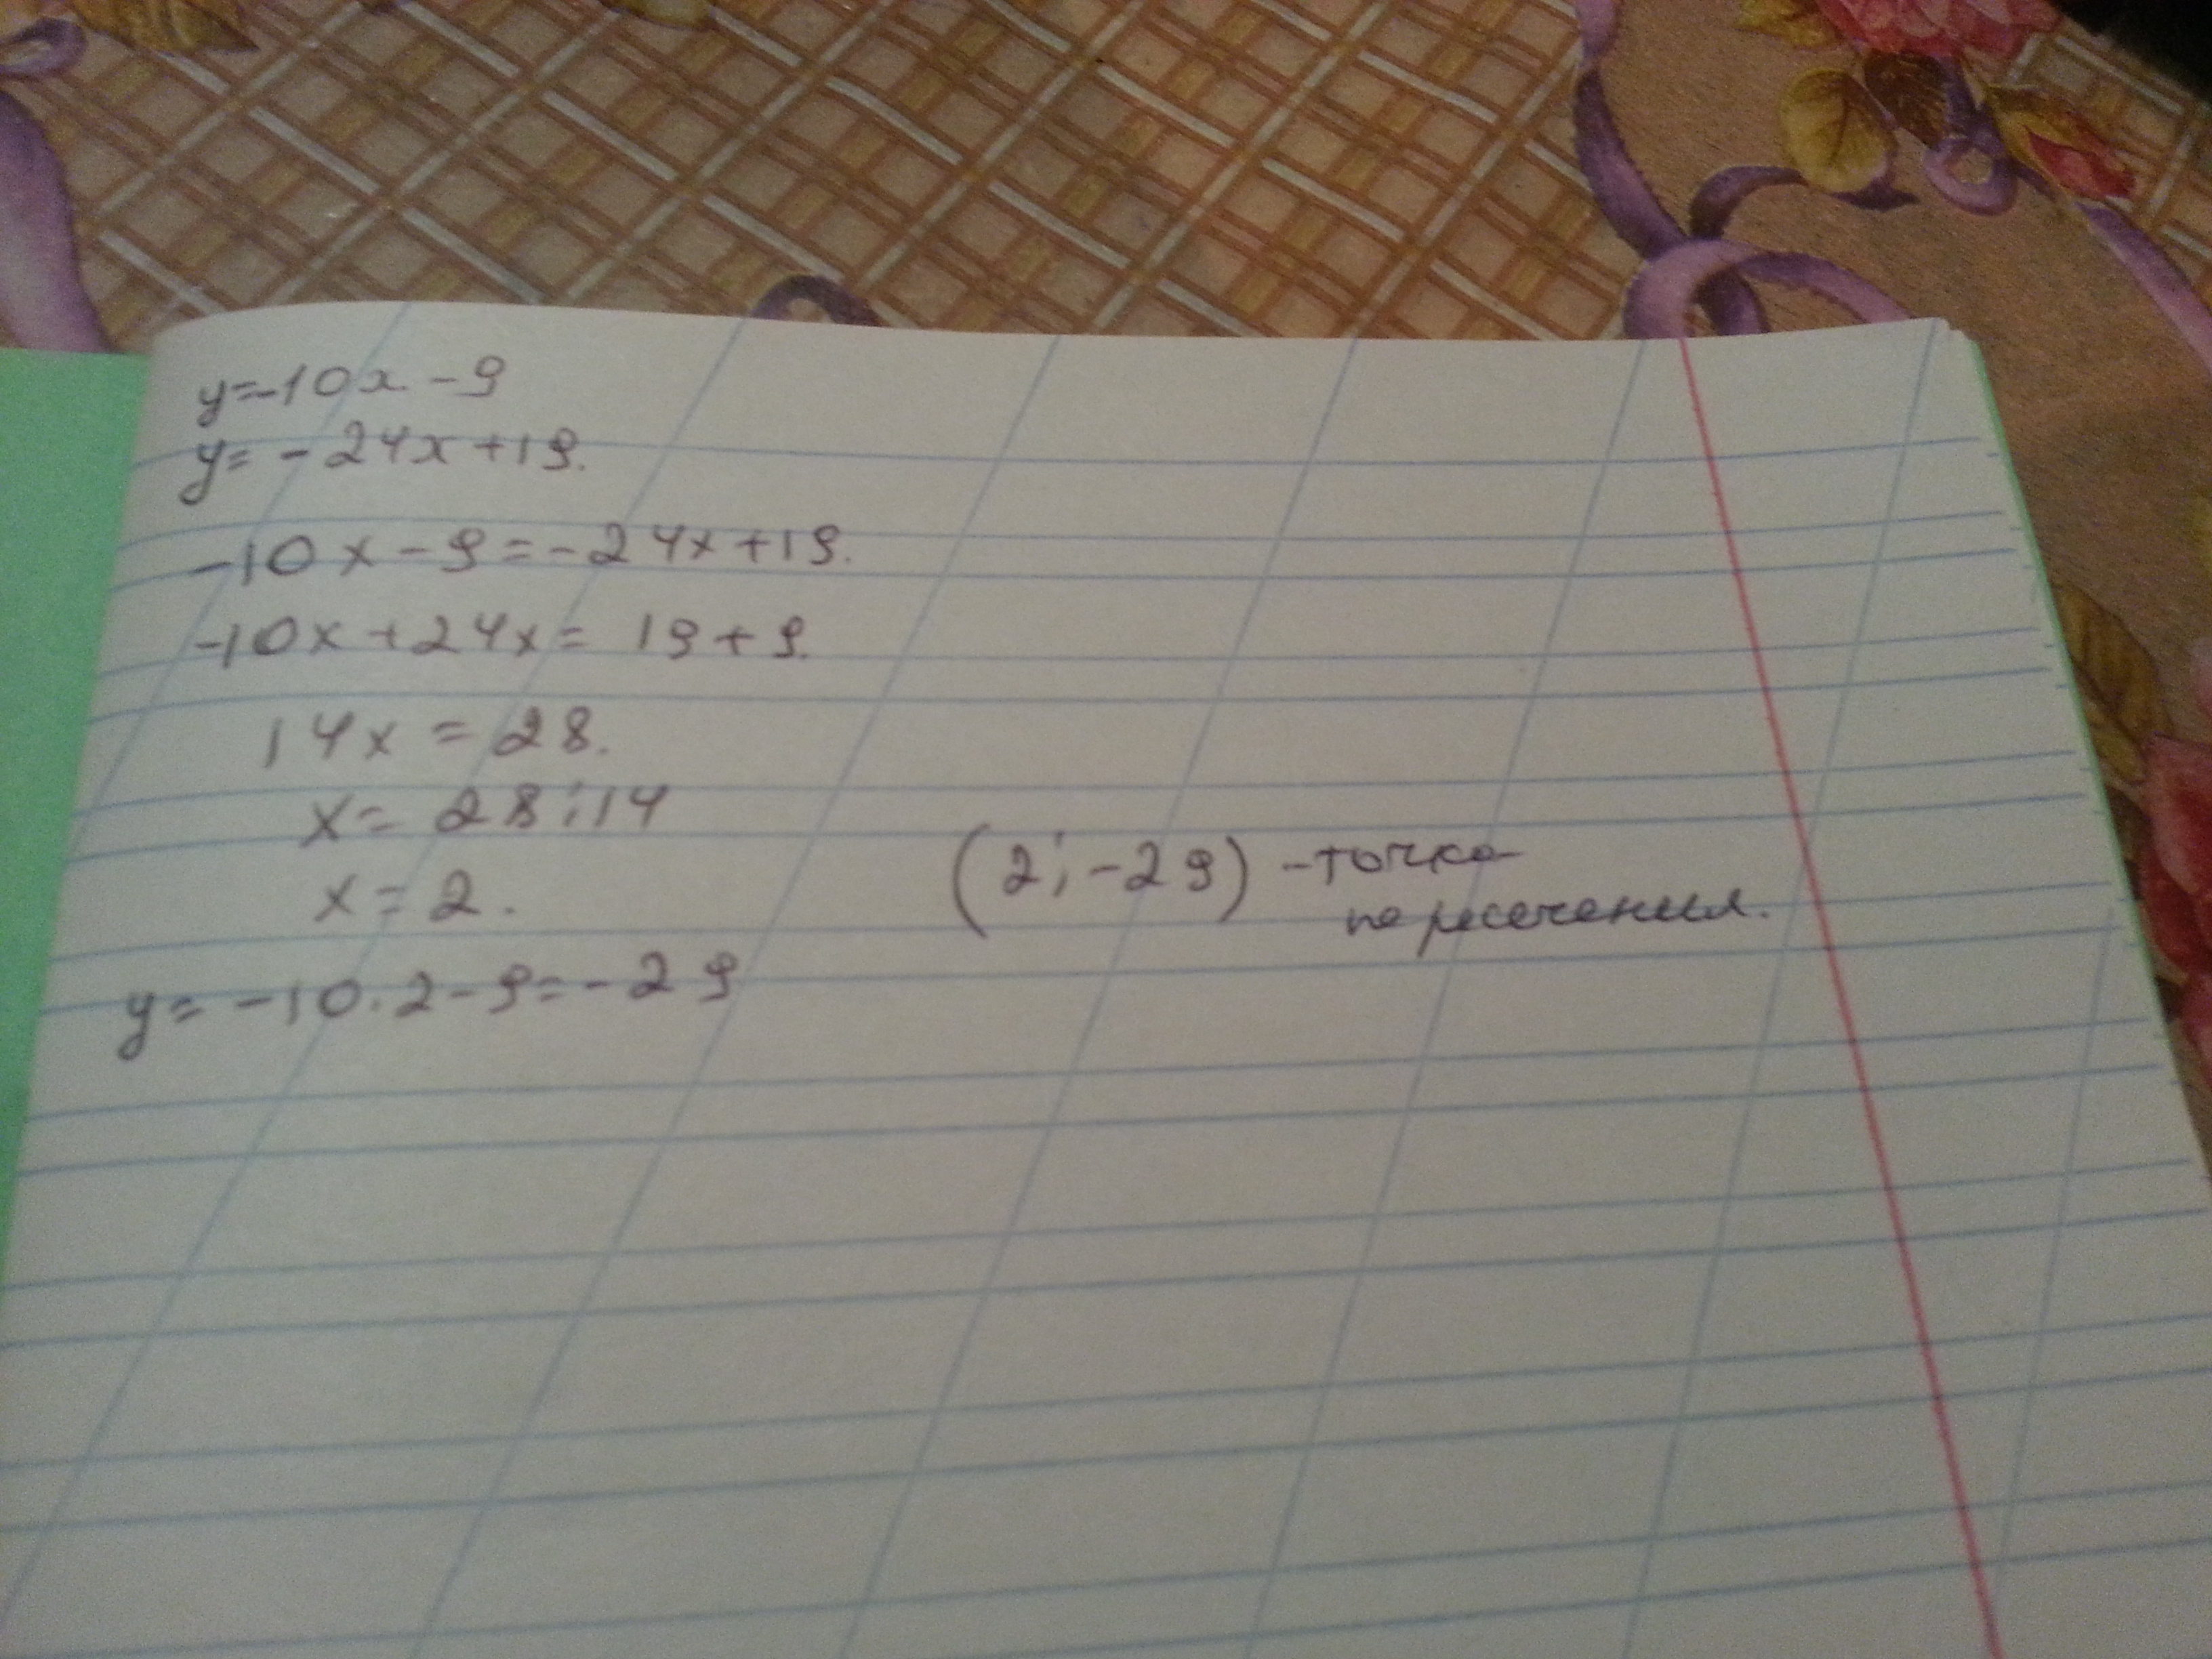 y=-10x-9
y=-24x+19.
-10x-9=-24x+19.
-10x+24x= 19+9.
14x=28.
x=28:14
x=2.
(2;-29) -точка
пересечения.
y=-10·2-9=-29